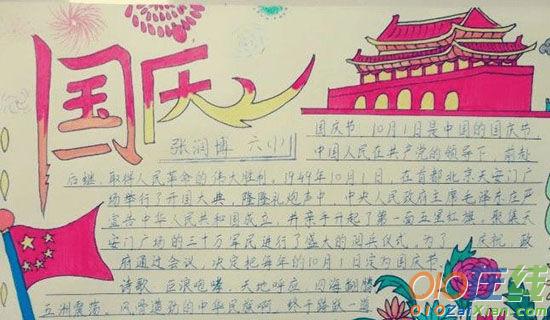 国庆
张润博 六(1)
国庆节 10月1日是中国的国庆节,
中国人民在共产党的领导下,前赴
后继,取得人民革命的伟大胜利,1949年10月1日,在首都北京天安门广
场举行了开国大典,隆隆礼炮声中,中央人民政府主席毛泽东庄严
宣告中华人民共和国成立,并亲手升起了第一面五星红旗,聚集天
安门广场的三十万军民进行了盛大的阅兵仪式,为了 庆祝,政
府通过会议,决定把每年的10月1日定为国庆节。
诗歌 巨浪咆哮,天地呼应,四海翻腾
五洲震荡,风雪遮劲的中华民族啊,终于踏跃一道
010在线
ZaiXian.com